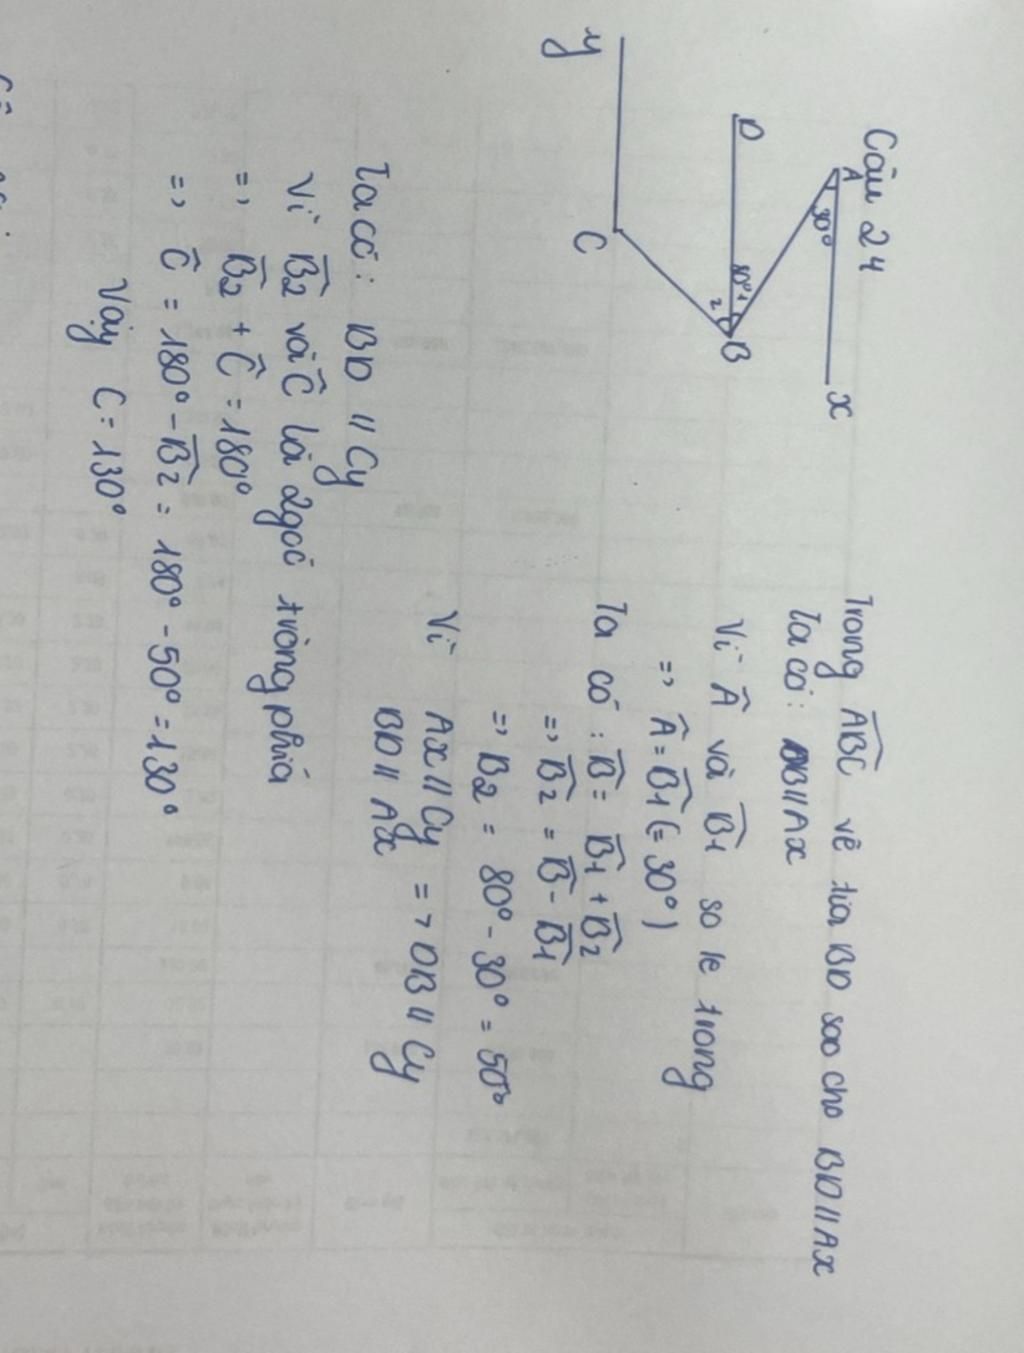 Câu 24
A
30°
x
D
80°
1
2
B
y
C
Trong ABC vẽ tia BD sao cho BD // Ax
Ta có: DB // Ax
Vì Â và B1 so le trong
=> Â = B1 (= 30°)
Ta có : B = B1 + B2
=> B2 = B - B1
=> B2 = 80° - 30° = 50°
Vì Ax // Cy => DB // Cy
BD // Ax
Ta có: BD // Cy
Vì B2 và Ĉ là 2góc trong phía
=> B2 + Ĉ = 180°
=> Ĉ = 180° - B2 = 180° - 50° = 130°
Vậy C = 130°